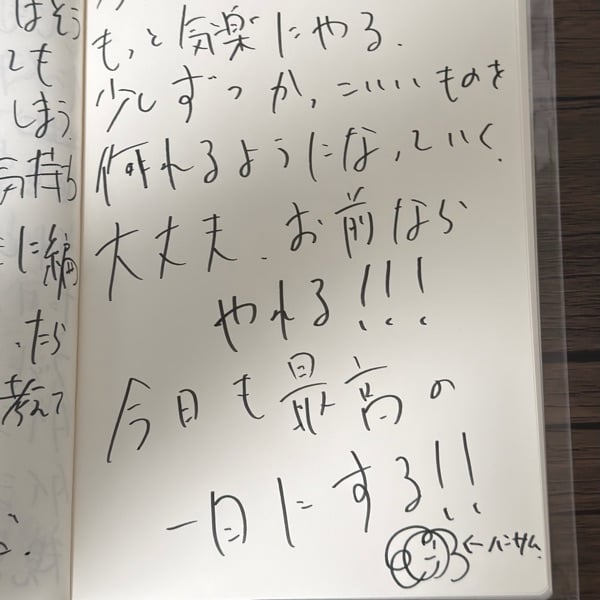 もっと気楽にやる.
少しずつか,こいいものを
作れるようにな,ていく.
大丈夫.お前なら
やれる!!!
今日も最高の
一日にする!!
←ハンサム.
はそう
ても
しまう.
気持ち
に編
たら
考えて